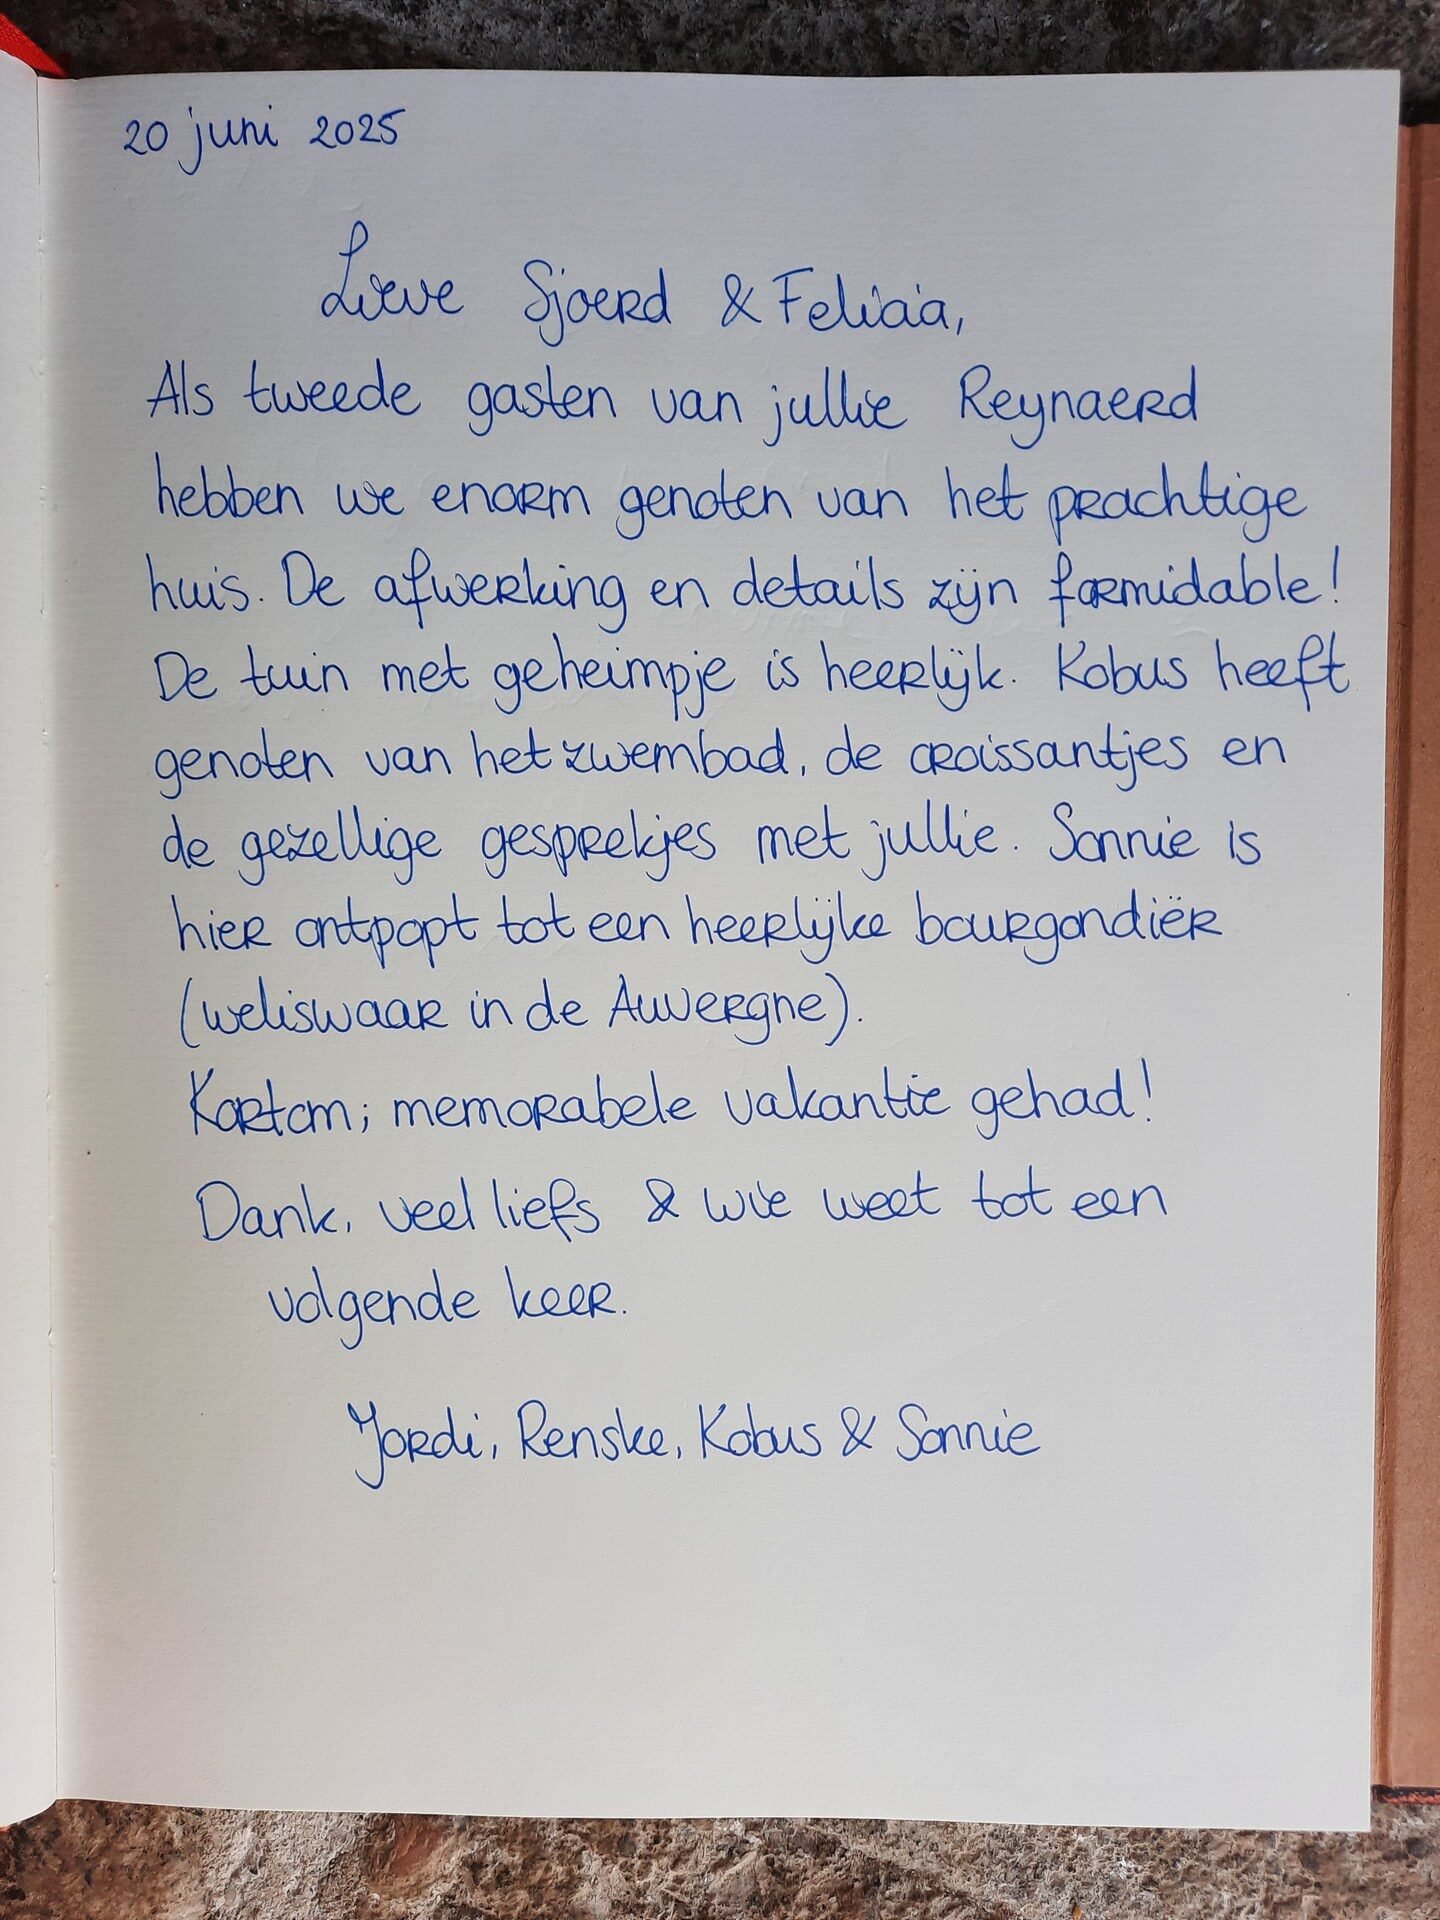 20 juni 2025
Lieve Sjoerd & Felicia,
Als tweede gasten van jullie Reynaerd
hebben we enorm genoten van het prachtige
huis. De afwerking en details zijn formidable!
De tuin met geheimpje is heerlijk. Kobus heeft
genoten van het zwembad, de croissantjes en
de gezellige gesprekjes met jullie. Sonnie is
hier ontpopt tot een heerlijke bourgondiër
(weliswaar in de Auvergne).
Kortom; memorabele vakantie gehad!
Dank, veel liefs & wie weet tot een
volgende keer.
Jordi, Renske, Kobus & Sonnie